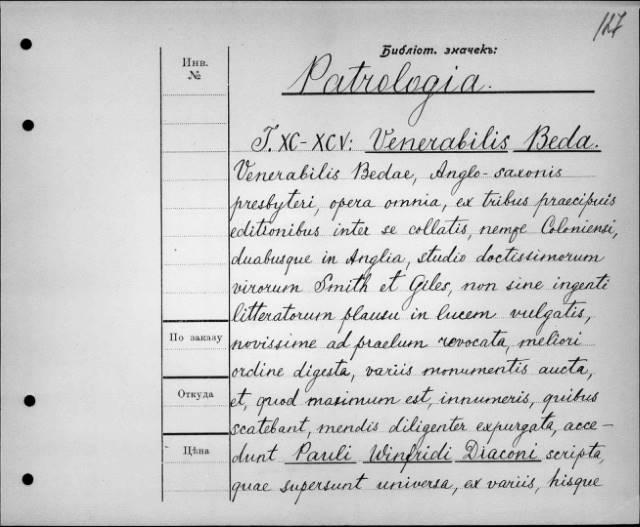 127
Библіот. значекъ:
Инв.
№
Patrologia.
T. XC-XCV: Venerabilis Beda.
Venerabilis Bedae, Anglo-saxonis
presbyteri, opera omnia, ex tribus praecipuis
editionibus inter se collatis, nempe Coloniensi,
duabusque in Anglia, studio doctissimorum
virorum Smith et Giles, non sine ingenti
litteratorum plausu in lucem vulgatis,
novissime ad praelum revocata, meliori
ordine digesta, variis monumentis aucta,
et, quod maximum est, innumeris, quibus
scatebant, mendis diligenter expurgata, acce-
dunt Pauli Winfridi Diaconi scripta,
quae supersunt universa, ex variis, hisque
По заказу
Откуда
Цѣна